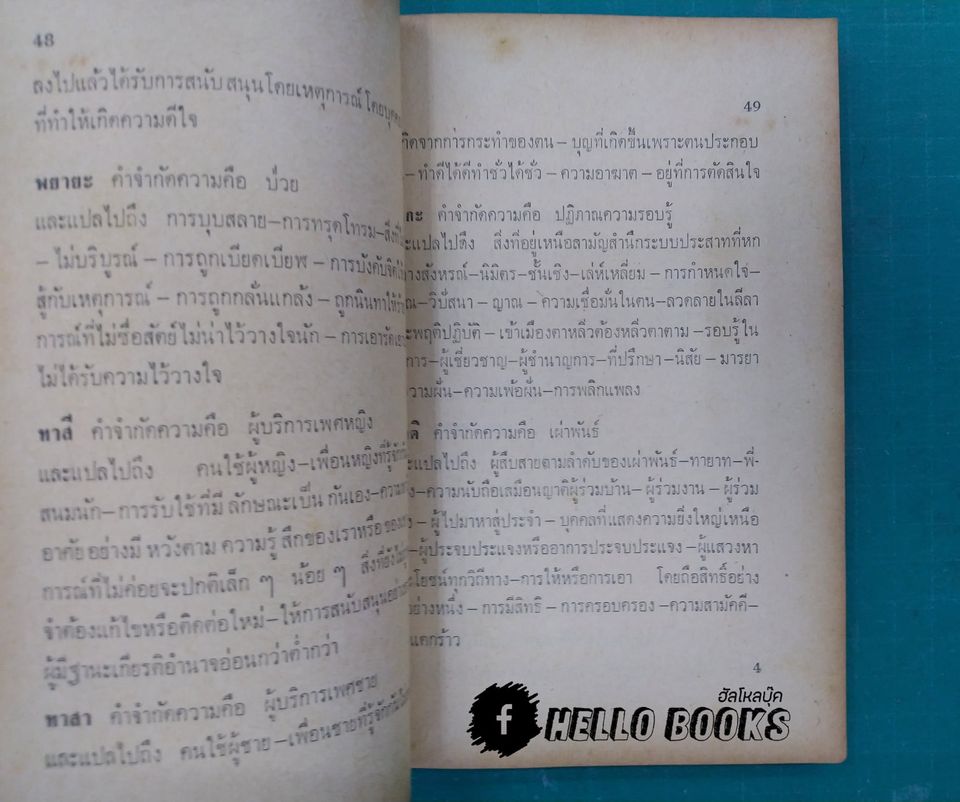 48
ลงไปแล้วได้รับการสนับสนุนโดยเหตุการณ์โดยบุคค
ที่ทำให้เกิดความดีใจ
พยายะ คำจำกัดความคือ ป่วย
และแปลไปถึง การบุบสลาย–การทรุดโทรม–สิ่งที่
– ไม่บริบูรณ์ – การถูกเบียดเบียฬ – การบังคับจิตใ
สู้กับเหตุการณ์ – การถูกกลั่นแกล้ง – ถูกนินทาให้ร้
การณ์ที่ไม่ซื่อสัตย์ไม่น่าไว้วางใจนัก – การเอารัดเอ
ไม่ได้รับความไว้วางใจ
ทาสี คำจำกัดความคือ ผู้บริการเพศหญิง
และแปลไปถึง คนใช้ผู้หญิง–เพื่อนหญิงที่รู้จัก
สนมนัก–การรับใช้ที่มี ลักษณะเป็น กันเอง–ความ
อาศัยอย่างมี หวังตาม ความรู้สึกของเราหรือ ของ
การณ์ที่ไม่ค่อยจะปกติเล็ก ๆ น้อย ๆ สิ่งที่ยัง
จำต้องแก้ไขหรือคิดต่อใหม่–ให้การสนับสนุนอย่าง
ผู้มีฐานะเกียรติอำนาจอ่อนกว่าต่ำกว่า
ทาสา คำจำกัดความคือ ผู้บริการเพศชาย
และแปลไปถึง คนใช้ผู้ชาย–เพื่อนชายที่รู้จักกัน
49
กิดจากการกระทำของตน – บุญที่เกิดขึ้นเพราะตนประกอบ
– ทำดีได้ดีทำชั่วได้ชั่ว – ความอาฆาต – อยู่ที่การตัดสินใจ
กะ คำจำกัดความคือ ปฏิภาณความรอบรู้
ะแปลไปถึง สิ่งที่อยู่เหนือสามัญสำนึกระบบประสาทที่หก
างสังหรณ์–นิมิตร–ชั้นเชิง–เล่ห์เหลี่ยม – การกำหนดใจ–
ณ–วิปัสนา – ญาณ – ความเชื่อมั่นในตน–ลวดลายในลีลา
ะพฤติปฏิบัติ – เข้าเมืองตาหลิ่วต้องหลิ่วตาตาม –รอบรู้ใน
การ–ผู้เชี่ยวชาญ–ผู้ชำนาญการ–ที่ปรึกษา–นิสัย – มารยา
วามฝัน–ความเพ้อฝัน–การพลิกแพลง
ติ คำจำกัดความคือ เผ่าพันธ์
ะแปลไปถึง ผู้สืบสายตามลำดับของเผ่าพันธ์–ทายาท–พี่–
ง–ความนับถือเสมือนญาติผู้ร่วมบ้าน– ผู้ร่วมงาน – ผู้ร่วม
– ผู้ไปมาหาสู่ประจำ – บุคคลที่แสดงความยิ่งใหญ่เหนือ
–ผู้ประจบประแจงหรืออาการประจบประแจง –ผู้แสวงหา
ะโยชน์ทุกวิถีทาง–การให้หรือการเอา โดยถือสิทธิ์อย่าง
อย่างหนึ่ง – การมีสิทธิ – การครอบครอง –ความสามัคคี–
แตกร้าว
4
ฮัลโหลบุ๊ค
f HELLO BOOKS